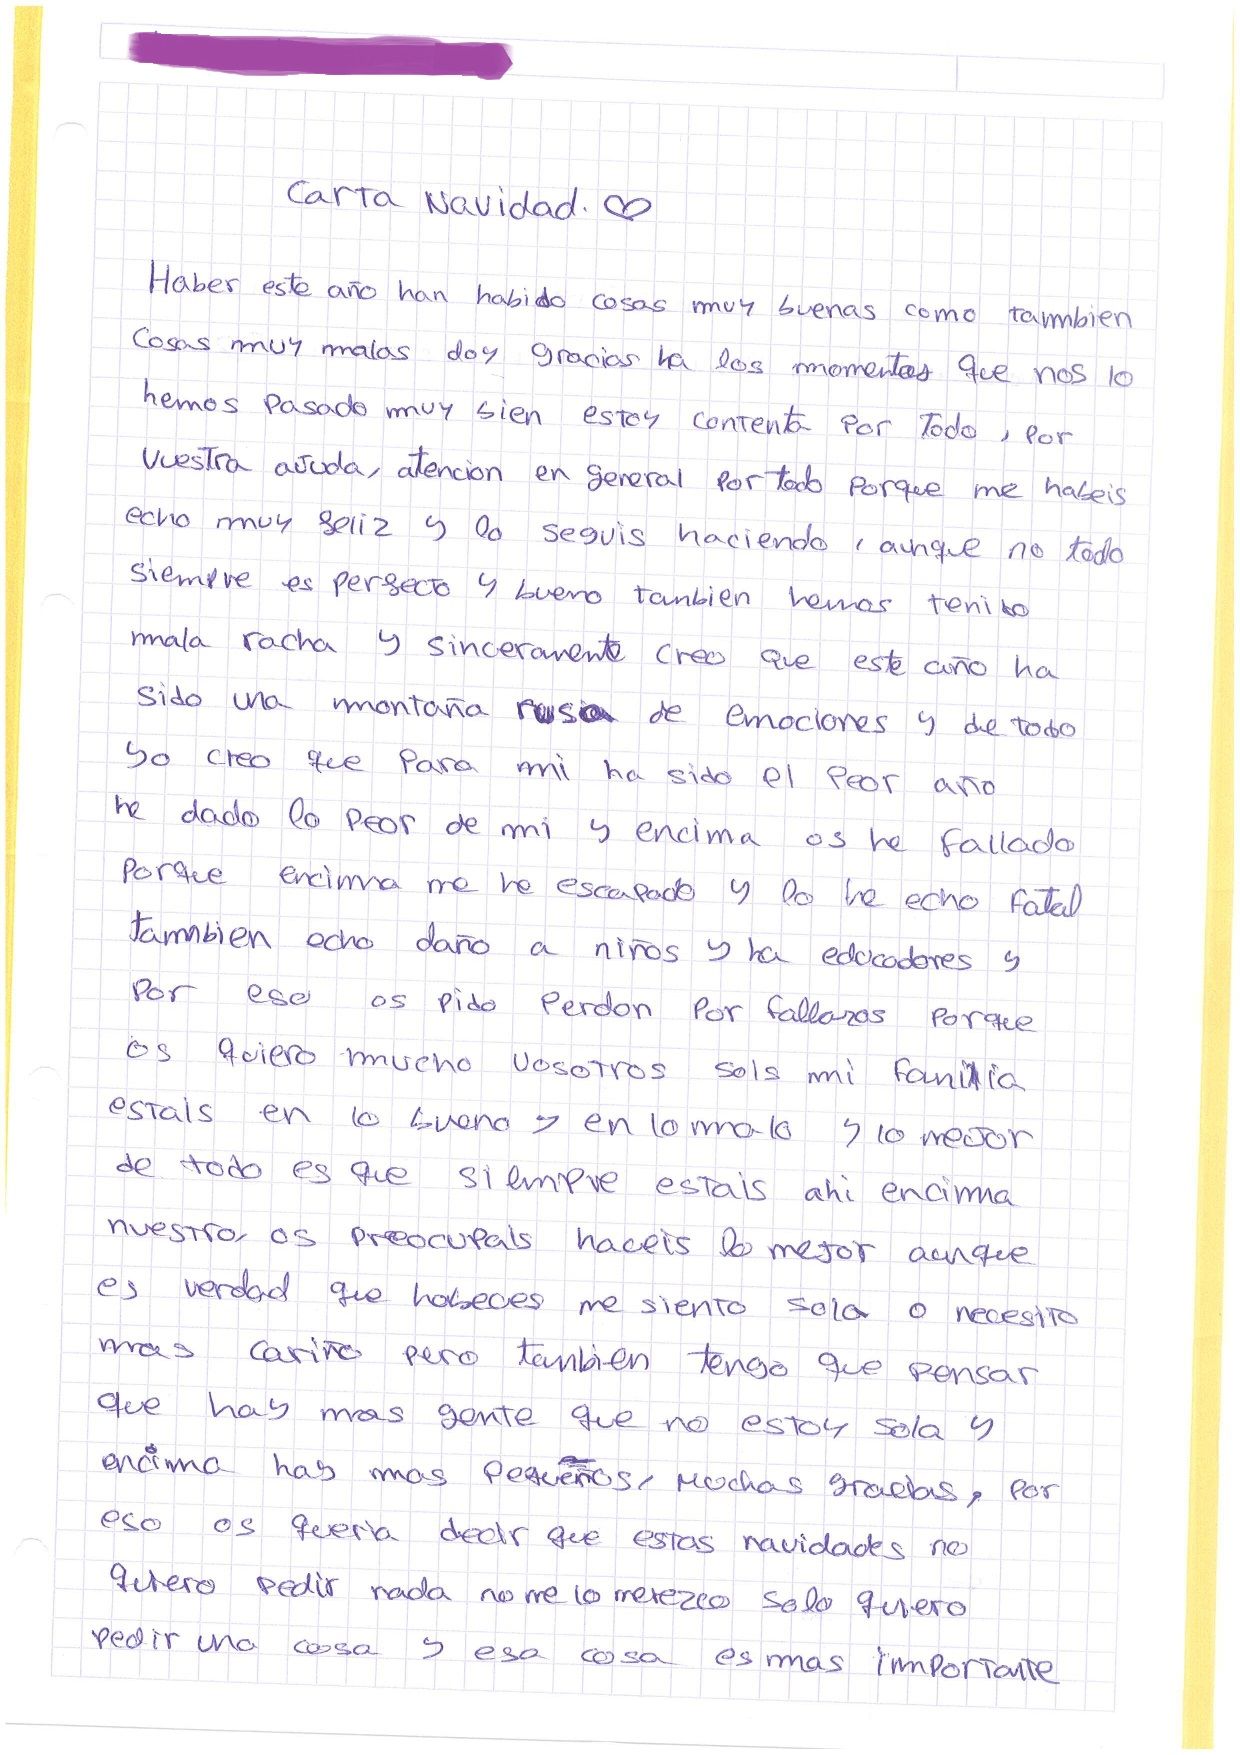 Carta Navidad. ♡
Haber este año han habido cosas muy buenas como tammbien
Cosas muy malas doy gracias ha los momentos que nos lo
hemos pasado muy bien estoy contenta por todo, por
vuestra ajuda, atencion en general por todo porque me habeis
echo muy feliz y lo seguis haciendo, aunque no todo
siempre es perfecto y bueno tanbien hemos tenido
mala racha y sinceramente creo que este año ha
sido una montaña rusa de emociones y de todo
yo creo que para mi ha sido el peor año
he dado lo peor de mi y encima os he fallado
porque encima me he escapado y lo he echo fatal
tamnbien echo daño a niños y ha educadores y
por eso os pido perdon por fallaros porque
os quiero mucho vosotros sois mi familia
estais en lo bueno y en lo malo y lo mejor
de todo es que siempre estais ahi encima
nuestro, os preocupais haceis lo mejor aunque
es verdad que habeces me siento sola o necesito
mas cariño pero tanbien tengo que pensar
que hay mas gente que no estoy sola y
encima hay mas pequeños, Muchas gracias, por
eso os queria decir que estas navidades no
quiero pedir nada no me lo merezco solo quiero
pedir una cosa y esa cosa es mas importante